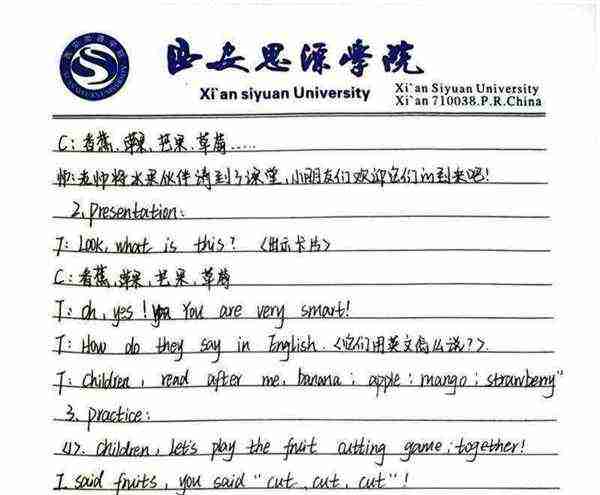 西安思源学院
Xi`an siyuan University
Xi`an Siyuan University
Xi`an 710038.P.R.China
C: 香蕉、苹果、芒果、草莓.....
师: 老师将水果伙伴请到了课堂, 小朋友们欢迎它们的到来吧!
2. Presentation:
T: Look, what is this? <出示卡片>
C: 香蕉、苹果、芒果、草莓
T: Oh, yes! You are very smart!
T: How do they say in English. <它们用英文怎么说?>.
T: Children, read after me, banana; apple; mango; strawberry"
3. Practice:
<1>. Children, let's play the fruit cutting game; together!
I said fruits, you said "cut, cut, cut"!